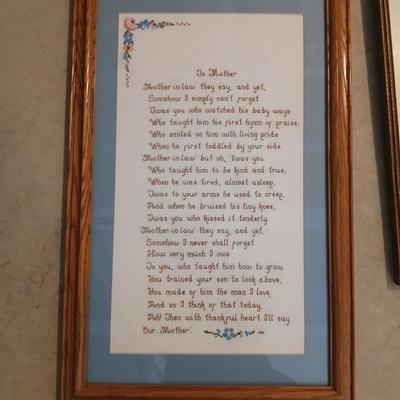 To Mother
'Mother-in-law' they say, and yet,
Somehow I simply can't forget
'Twas you who watched his baby ways
Who taught him his first hymn of praise,
Who smiled on him with loving pride
When he first toddled by your side.
'Mother-in-law' but oh, 'twas you
Who taught him to be kind and true;
When he was tired, almost asleep,
'Twas to your arms he used to creep,
And when he bruised his tiny knee,
'Twas you who kissed it tenderly.
'Mother-in-law' they say, and yet,
Somehow I never shall forget
How very much I owe
To you, who taught him how to grow.
You trained your son to look above,
You made of him the man I love,
And so I think of that today,
Ah! Then with thankful heart I'll say
'Our Mother'.